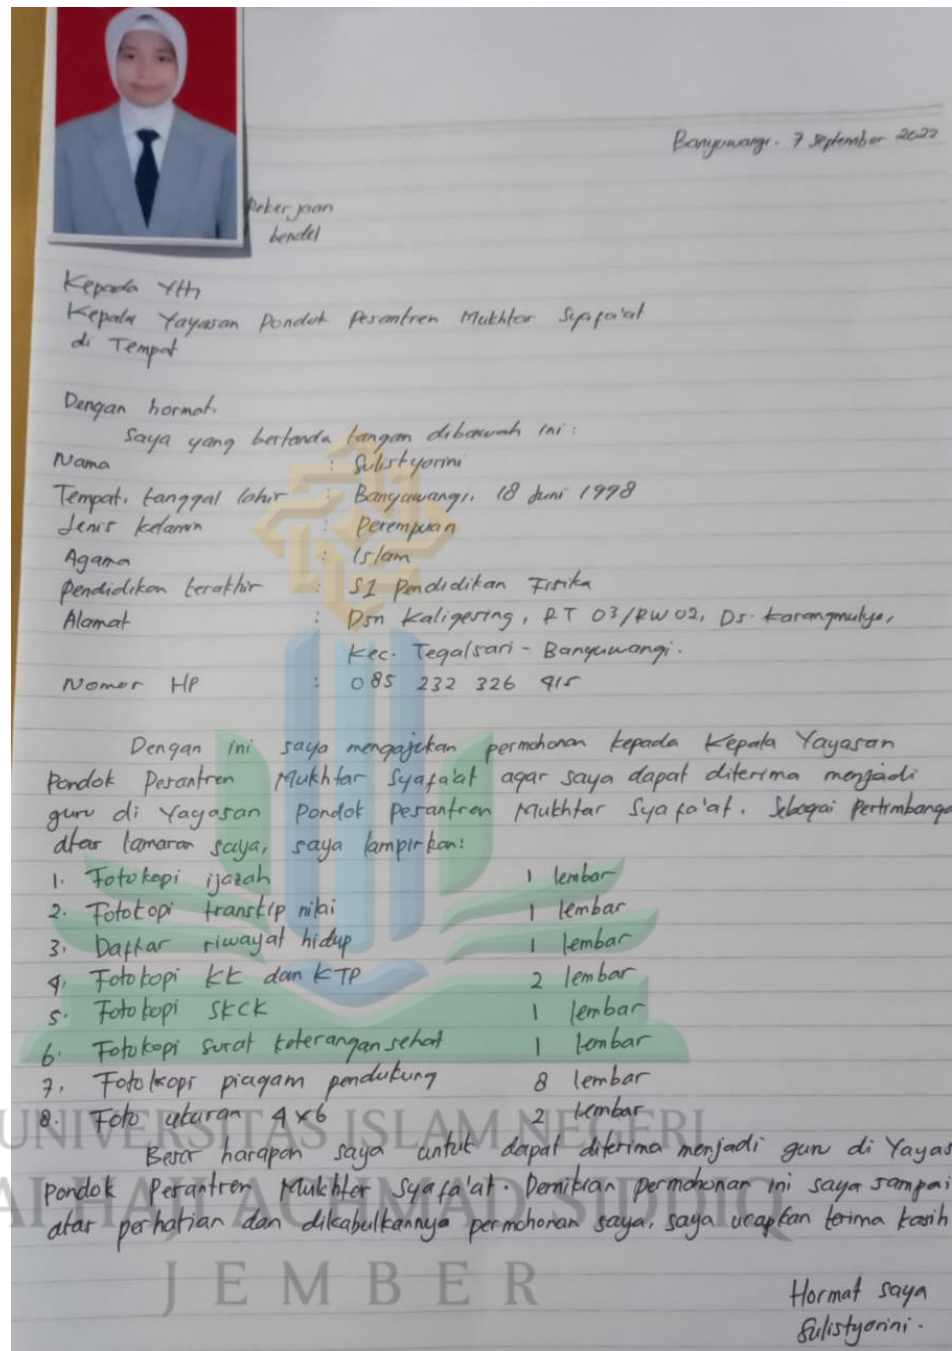 Banyuwangi, 7 September 2022
Pekerjaan
bendel
Kepada Yth
Kepala Yayasan Pondok Pesantren Mukhtar Syafa'at
di Tempat
Dengan hormat,
Saya yang bertanda tangan dibawah ini :
Nama : Sulistyorini
Tempat, tanggal lahir : Banyuwangi, 18 Juni 1998
Jenis kelamin : Perempuan
Agama : Islam
Pendidikan terakhir : S1 Pendidikan Fisika
Alamat : Dsn Kaligesing, RT 03/RW 02, Ds. Karangmulyo,
Kec. Tegalsari - Banyuwangi.
Nomor HP : 085 232 326 915
Dengan ini saya mengajukan permohonan kepada Kepala Yayasan
Pondok Pesantren Mukhtar Syafa'at agar saya dapat diterima menjadi
guru di Yayasan Pondok Pesantren Mukhtar Syafa'at. Sebagai Pertimbanga
atas lamaran saya, saya lampirkan:
1. Fotokopi ijazah 1 lembar
2. Fotokopi transkip nilai 1 lembar
3. Daftar riwayat hidup 1 lembar
4. Fotokopi KK dan KTP 2 lembar
5. Fotokopi SKCK 1 lembar
6. Fotokopi surat keterangan sehat 1 lembar
7. Fotokopi piagam pendukung 8 lembar
8. Foto ukuran 4x6 2 lembar
UNIVERSITAS ISLAM NEGERI
Besar harapan saya untuk dapat diterima menjadi guru di Yayas
Pondok Pesantren Mukhtar Syafa'at. Demikian permohonan ini saya sampai
AI HAJI ACHMAD SIDDIQ
atas perhatian dan dikabulkannya permohonan saya, saya ucapkan terima kasih
JEMBER
Hormat saya
Sulistyorini.